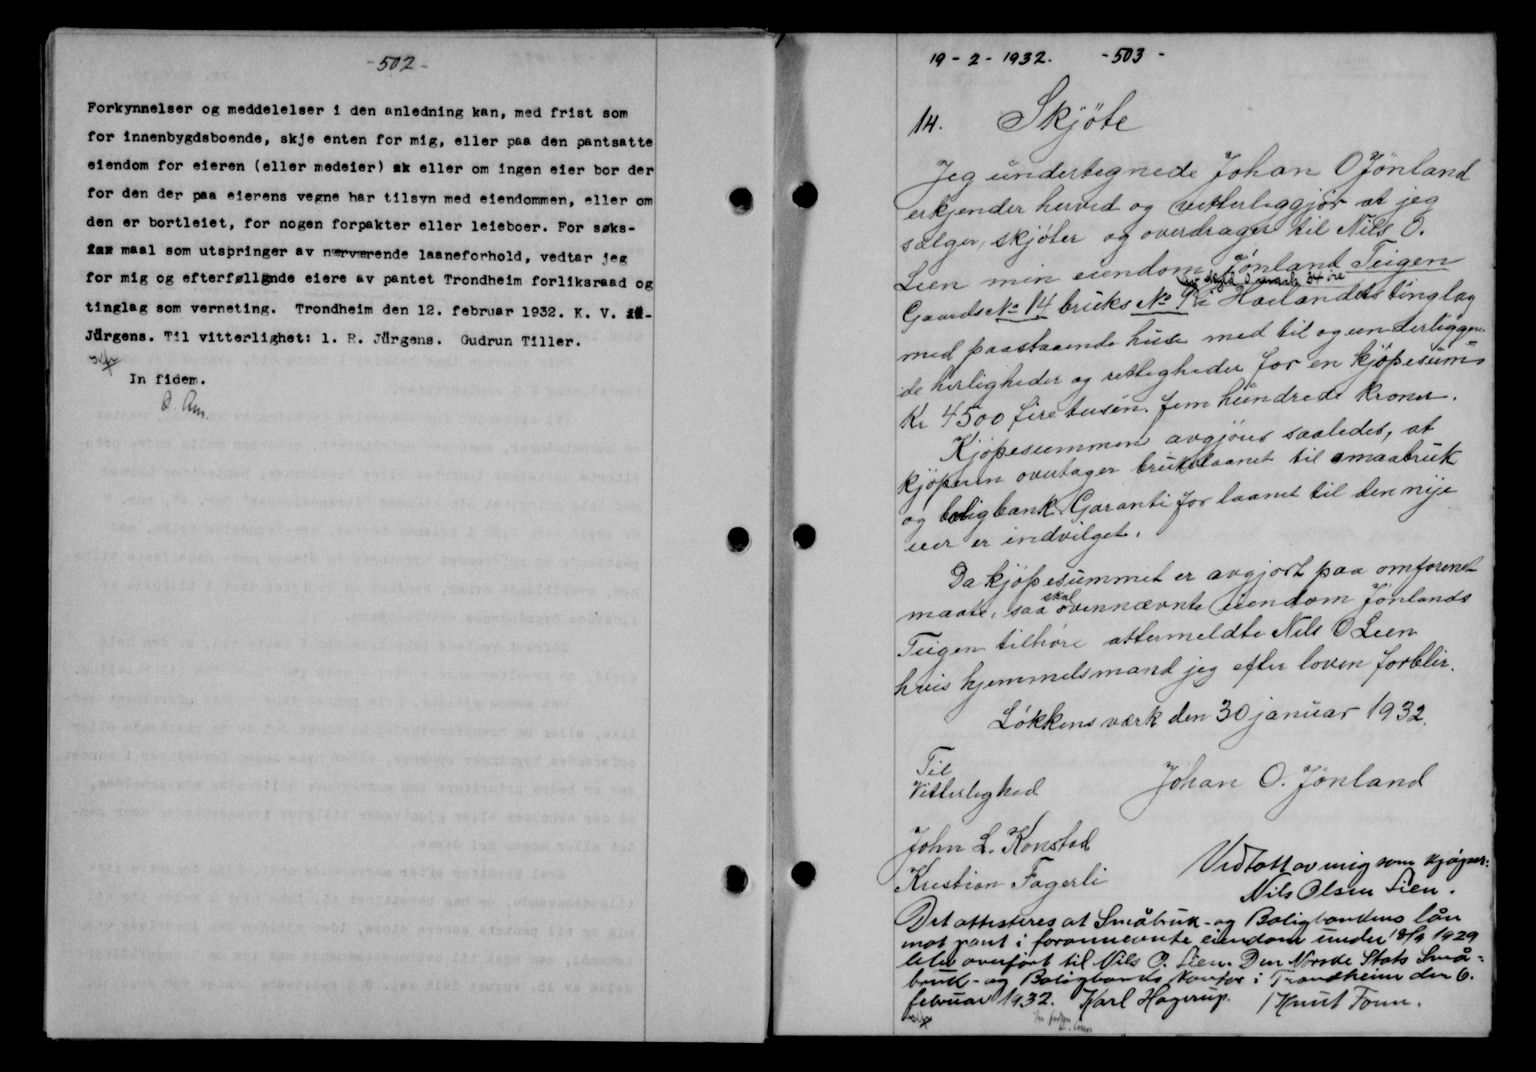 -502-
Forkynnelser og meddelelser i den anledning kan, med frist som
for innenbygdsboende, skje enten for mig, eller paa den pantsatte
eiendom for eieren (eller medeier) eller om ingen eier bor der
for den der paa eierens vegne har tilsyn med eiendommen, eller om
den er bortleiet, for nogen forpakter eller leieboer. For søks-
maal som utspringer av nærværende laaneforhold, vedtar jeg
for mig og efterføllgnde eiere av pantet Trondheim forliksraad og
tinglag som verneting. Trondheim den 12. februar 1932. K. V.
Jürgens. Til vitterlighet: 1. R. Jürgens. Gudrun Tiller.
In fidem.
19-2-1932. -503-
14. Skjöte
Jeg undertegnede Johan O Jönland
erkjender herved og vitterliggjör at jeg
sælger, skjöter og overdrager til Nils O.
Lien min eiendom Jönland Teigen
av skyld 34 öre
Gaards No 14 bruks No 9 i Hölandets tinglag
med paastaaende huse med til og underliggen-
de herligheder og rettigheder for en kjöpesum-
Kr 4500 fire tusen. fem hundrede kroner.
Kjöpesummen avgjöres saaledes, at
kjöperen overtager brukslaanet til smaabruk
og boligbank. Garanti for laanet til den nye
eier er indvilget.
Da kjöpesummet er avgjort paa omforenet
maate, saa skal ovennævnte eiendom Jönlands
Teigen tilhöre attermeldte Nils O Lien
hvis hjemmelsmand jeg efter loven forblir.
Lökkens værk den 30 januar 1932.
Til
Vitterlighed
Johan O. Jönland
John L. Konstad
Kristian Fagerli
Vedtatt av mig som kjöper:
Nils Olsen Lien.
Det attesteres at Småbruk- og Boligbankens lån
mot pant i forannevnte eiendom under 18/9 1929
blev overfört til Nils O. Lien. Den Norske Stats Små-
bruk- og Boligbanks kontor i Trondheim den 6.
februar 1932. Karl Hagerup. / Knut Fonn.